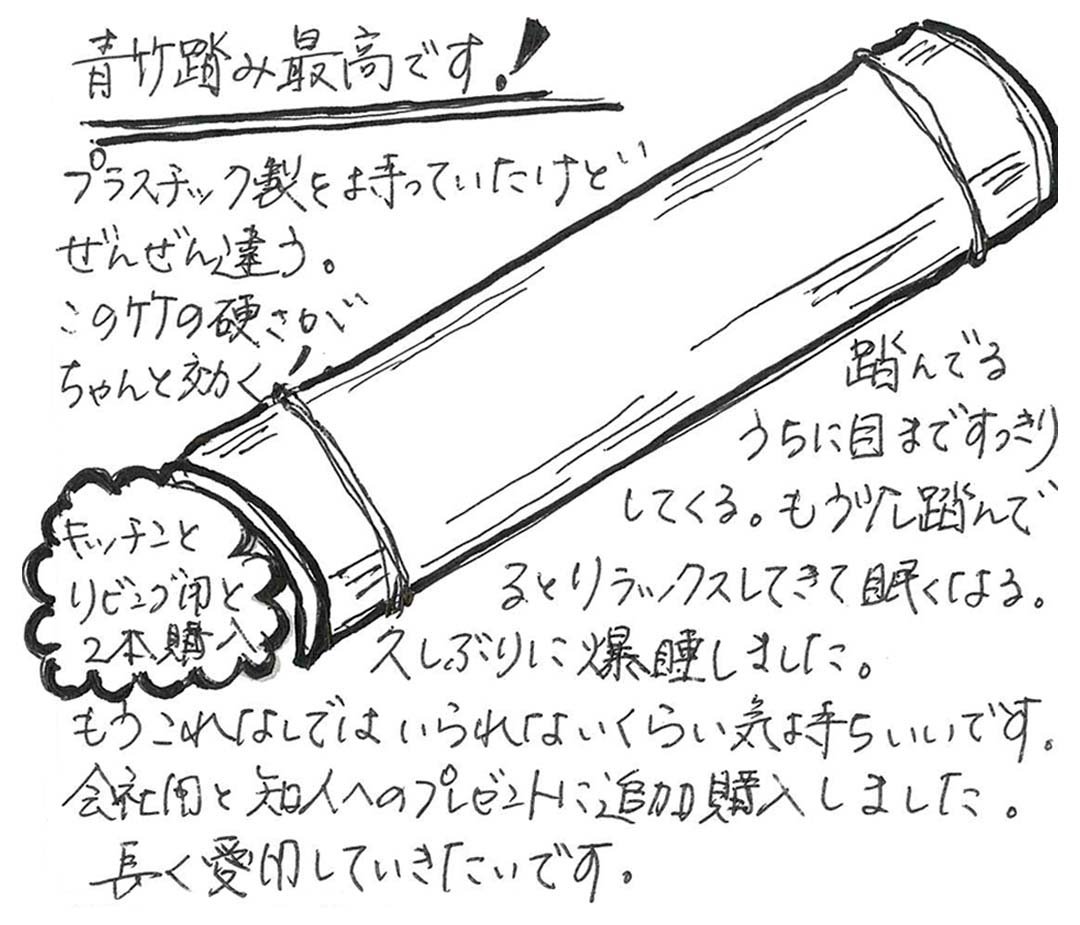 青竹踏み最高です。!
プラスチック製を持っていたけど
ぜんぜん違う。
この竹の硬さが
ちゃんと効く!
踏んでる
うちに目まですっきり
してくる。もう少し踏んで
るとリラックスしてきて眠くなる。
久しぶりに爆睡しました。
キッチンと
リビング用と
2本購入
もうこれなしではいられないくらい気持ちいいです。
会社用と知人へのプレゼントに追加購入しました。
長く愛用していきたいです。